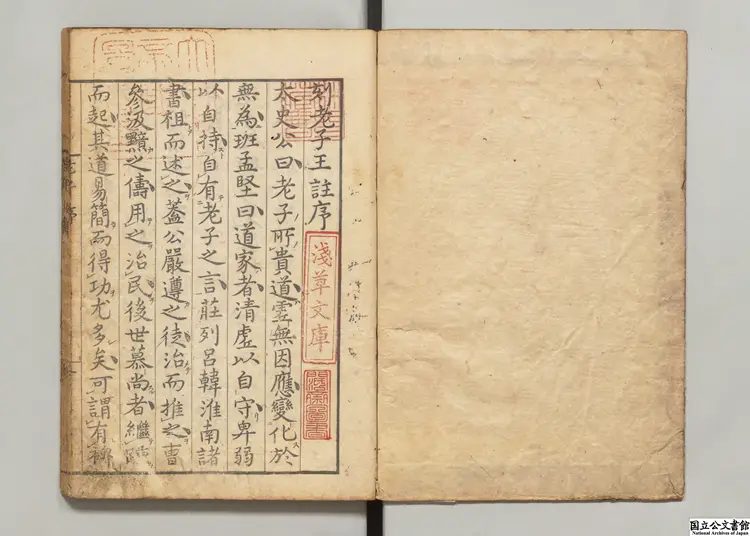 刻老子王註序
淺草文庫
太史公曰老子所貴道虛無因應變化於
無為班孟堅曰道家者清虛以自守卑弱
以自持自有老子之言莊列呂韓淮南諸
書祖而述之蓋公嚴遵之徒治而推之曹
參汲黯之儔用之治民後世慕尚者繼
而起其道易簡而得功尤多矣可謂有裨
国立公文書館
National Archives of Japan